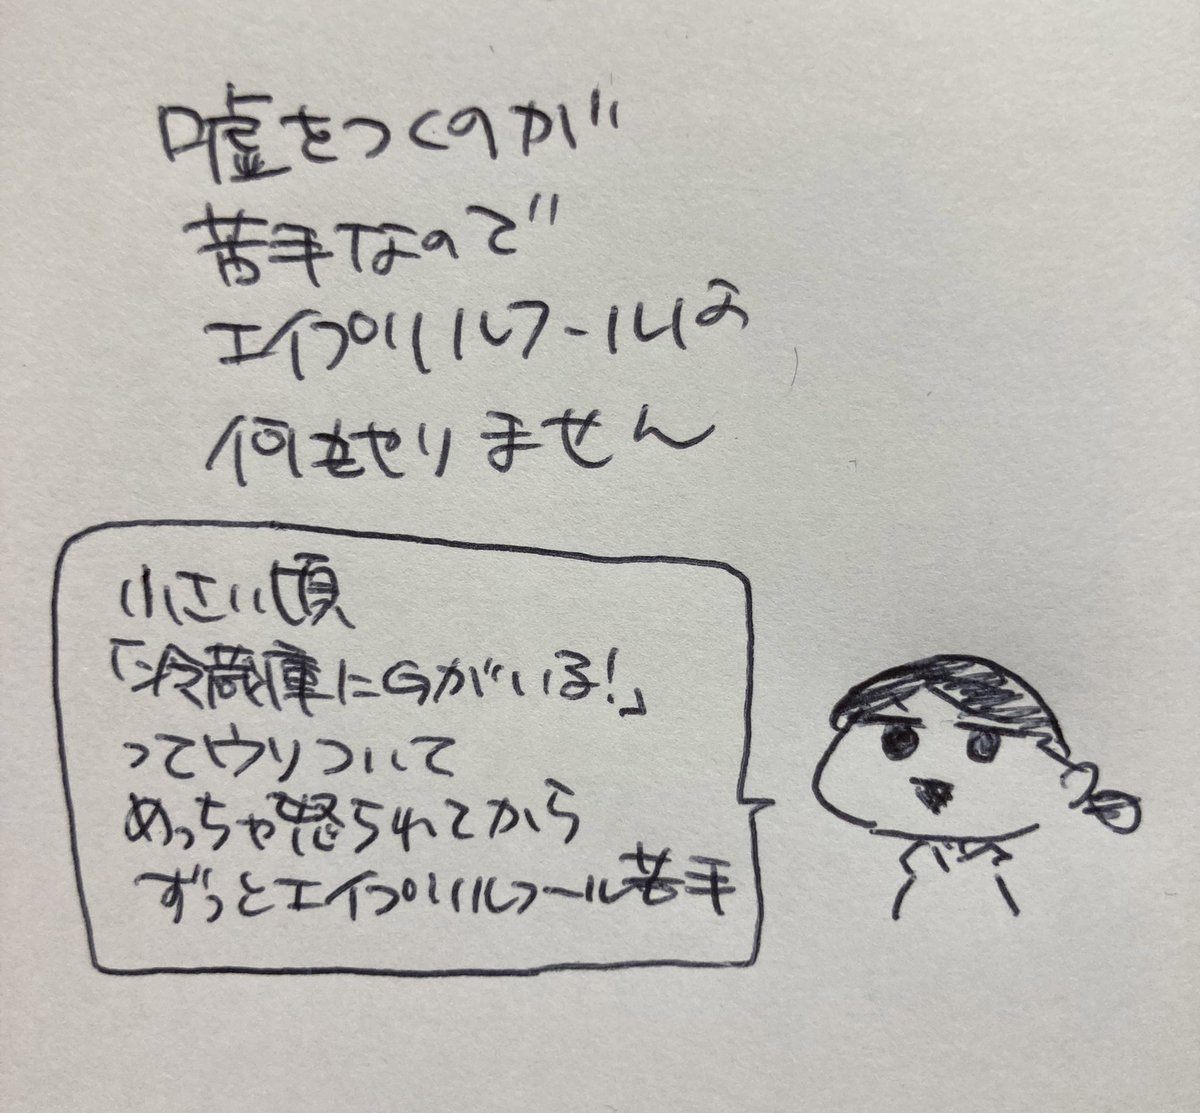 嘘をつくのが
苦手なので
エイプリルフールは
何もやりません
小さい頃
「冷蔵庫にGがいる!」
ってウソついて
めっちゃ怒られてから
ずっとエイプリルフール苦手